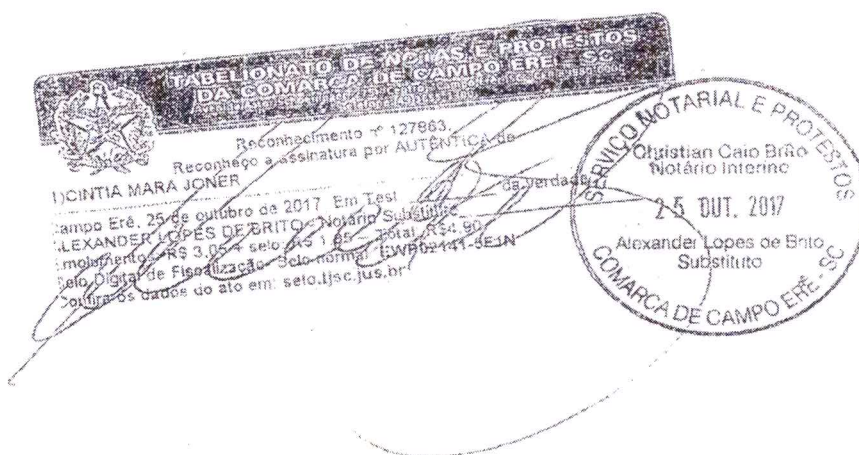 TABELIONATO DE NOTAS E PROTESTOS
DA COMARCA DE CAMPO ERÊ - SC
Reconhecimento nº 127963.
Reconheço a assinatura por AUTÊNTICA de
1)CINTIA MARA JONER
Campo Erê, 25 de outubro de 2017 Em Test da verdade
ALEXANDER LOPES DE BRITO - Notário Substituto
Emolumento R$ 3,05 + selo R$ 1,85 -- Total R$4,90
Selo Digital de Fiscalização Selo normal EWP02141-5E1N
Confira os dados do ato em: selo.tjsc.jus.br
SERVIÇO NOTARIAL E PROTESTOS
Christian Caio Brito
Notário Interino
25 OUT. 2017
Alexander Lopes de Brito
Substituto
COMARCA DE CAMPO ERÊ - SC